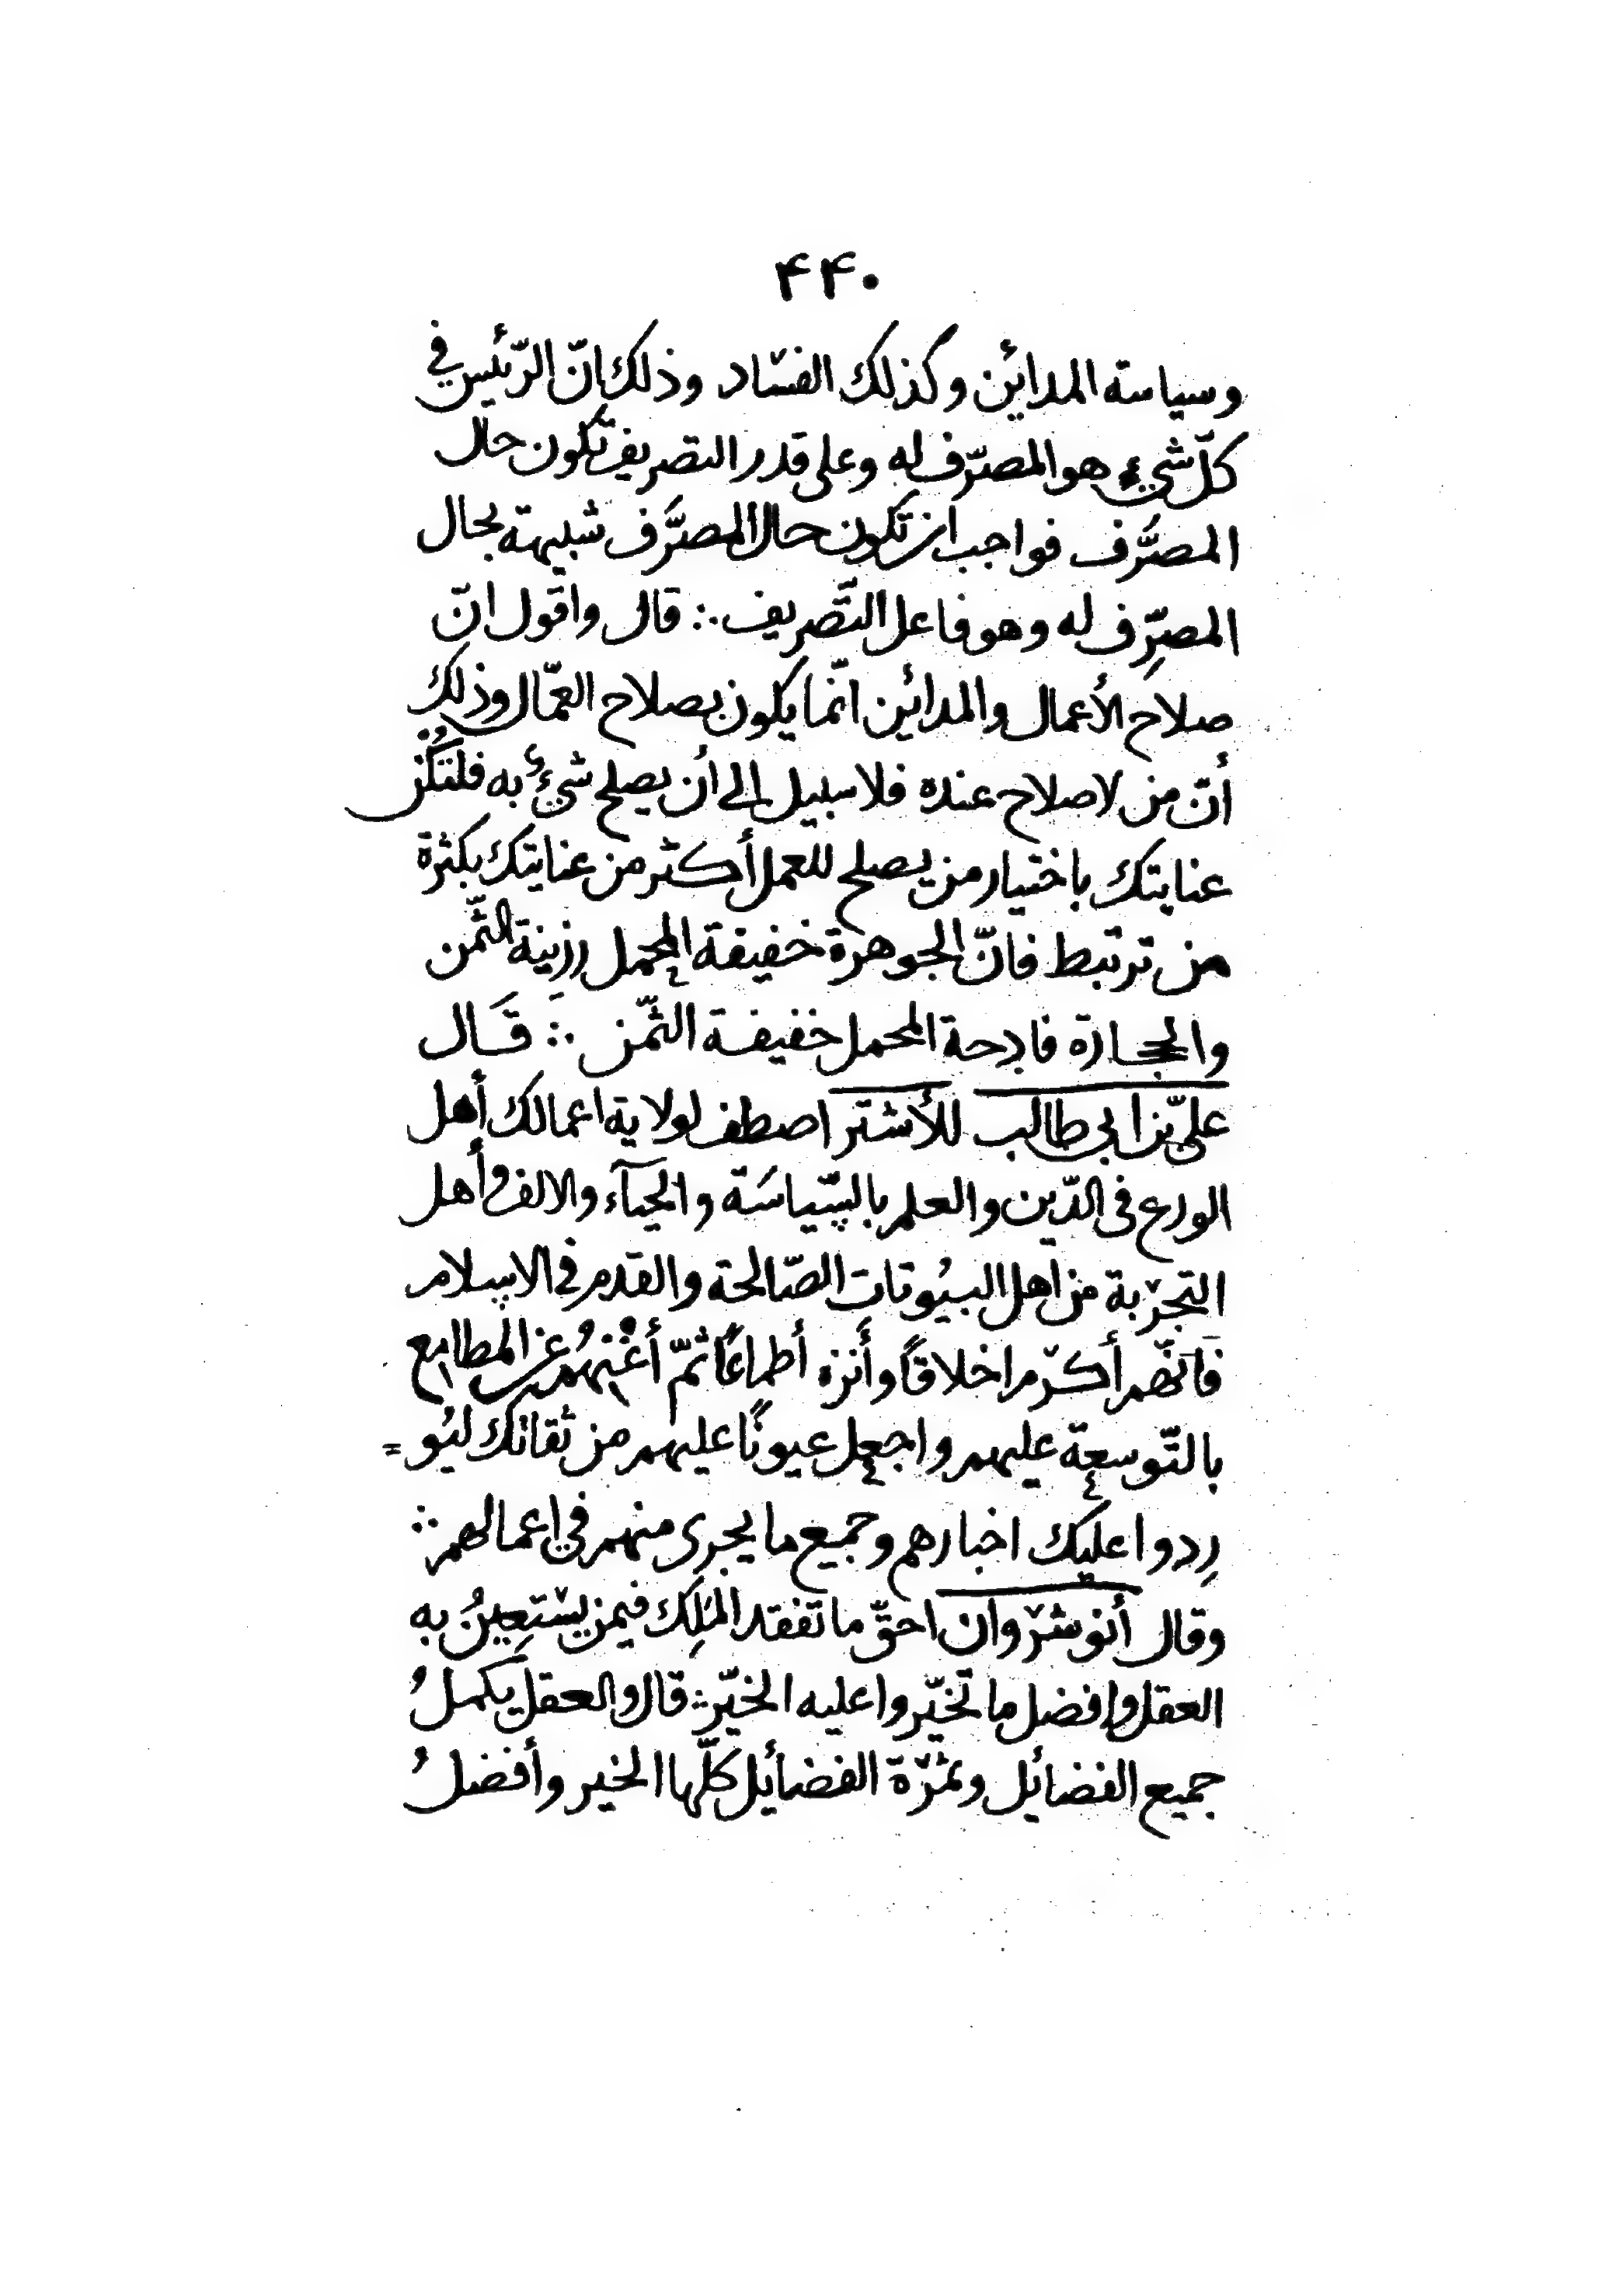 ۴۴۰
وسياسته المدائن وكذلك الفساد وذلك انّ الرّئيس في
كلّ شيء هو المصرّف له وعلى قدر التصريف تكون حال
المصرَّف فواجب ان تكون حال المصرَّف شبيهة بحال
المصرِّف له وهو فاعل التَّصريف ∴ قال واقول انّ
صلاح الأعمال والمدائن انّما يكون بصلاح العمّال وذلك
أنّ من لا صلاح عنده فلا سبيل إلى أن يصلح شيء به فلتكُنْ
عنايتك باختيار من يصلح للعمل أكثر من عنايتك بكثرة
من ترتبط فانّ الجوهرة خفيفة المحمل رزينة الثّمن
والحجارة فادحة المحمل خفيفة الثّمن ∴ قَال
علىّ بن ابى طالب للأشتر اصطف لولاية اعمالك أهل
الورع فى الدّين والعلم بالسّياسَة والحيآء والالف وأهل
التجرْبة من اهل البيُوتات الصّالحة والقدم في الاسلام
فَانّهم أكرْم اخلاقًا وأنزه أطماعًا ثمّ أغْنِهُمْ عن المطامع
بالتّوسعة عليهم واجعل عيونًا عليهم من ثقاتك ليُو=
رِدوا عليك اخبارهم وجميع ما يجرى منهم في اعمالهم ∴
وقال أنوشرْوان احقّ ما تفقد المَلِك فيمن يسْتعِينُ به
العقل وافضل ما تخيّروا عليه الخيّر ∴ قال والعقل يكملُ
جميع الفضائل وثمرْة الفضائل كلّها الخير وأفضلُ